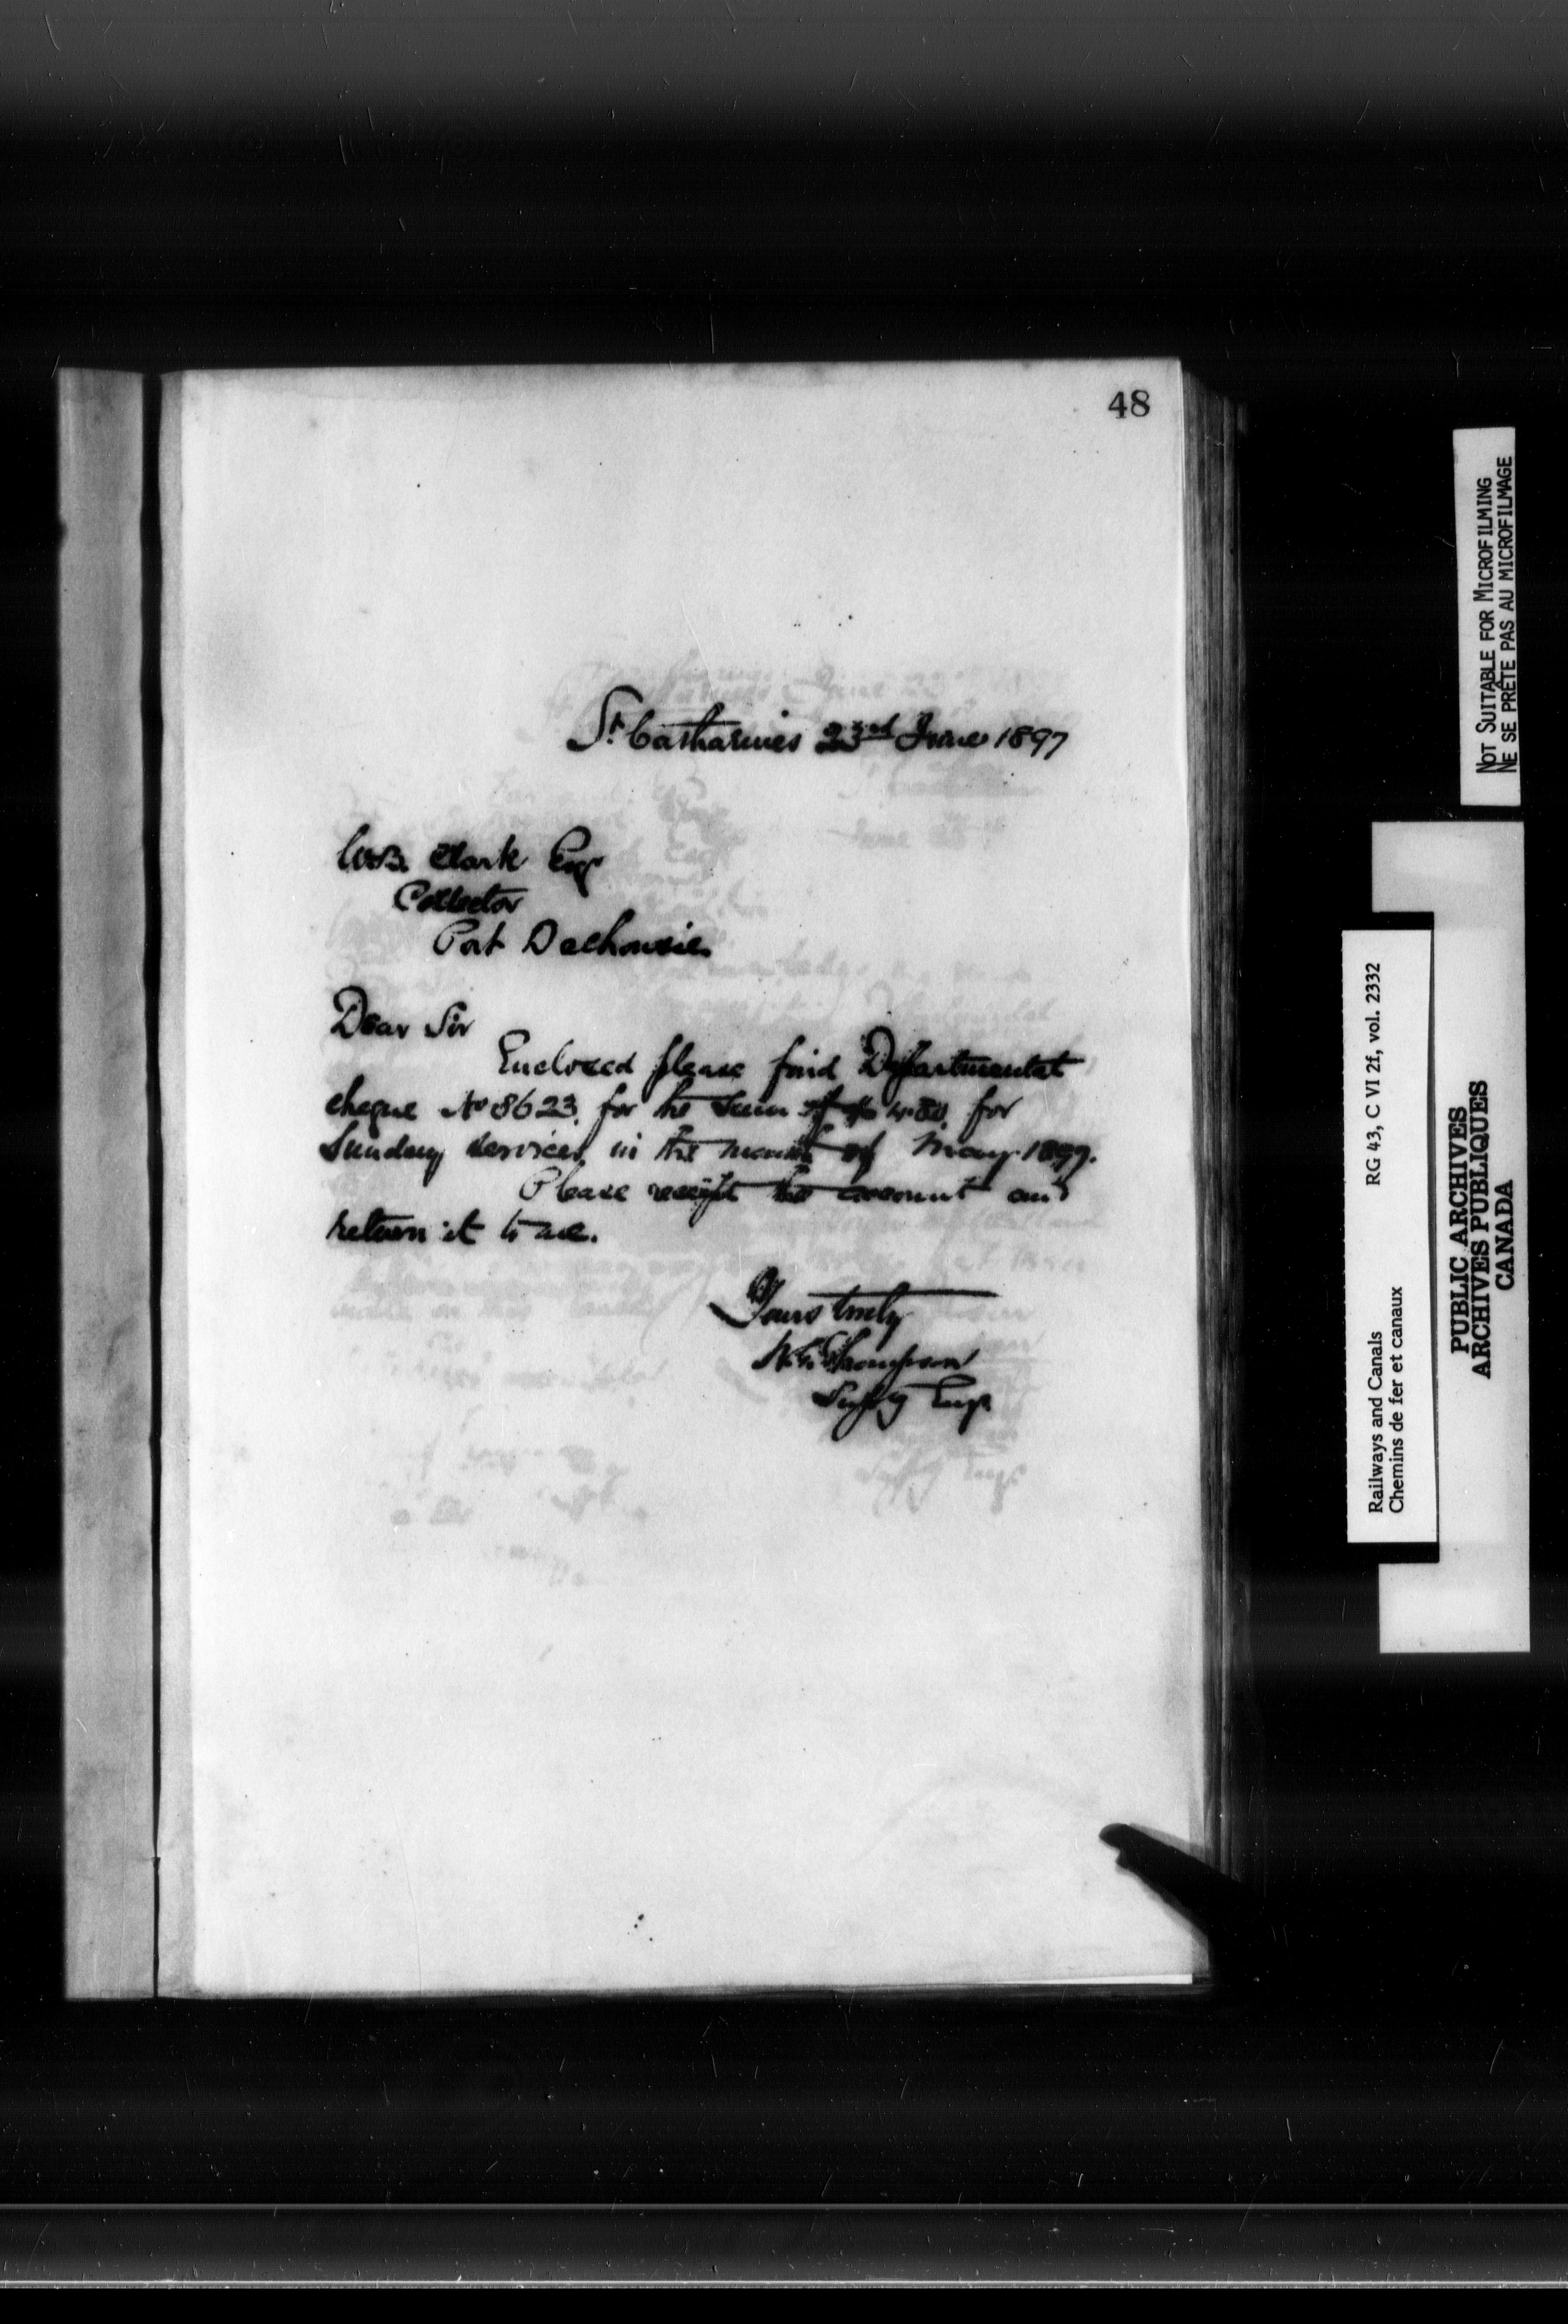 48
St. Catharines 23rd June 1897
W.B. Clark Esq
Collector
Port Dalhousie
Dear Sir
Enclosed please find Departmental
cheque No 8623 for the sum of for
Sunday services in the month of May 1897.
Please receipt the account and
return it to me.
Yours truly
W.G. Thompson
Supt'g Engr
NOT SUITABLE FOR MICROFILMING
NE SE PRÊTE PAS AU MICROFILMAGE
RG 43, C VI 2f, vol. 2332
Railways and Canals
Chemins de fer et canaux
PUBLIC ARCHIVES
ARCHIVES PUBLIQUES
CANADA